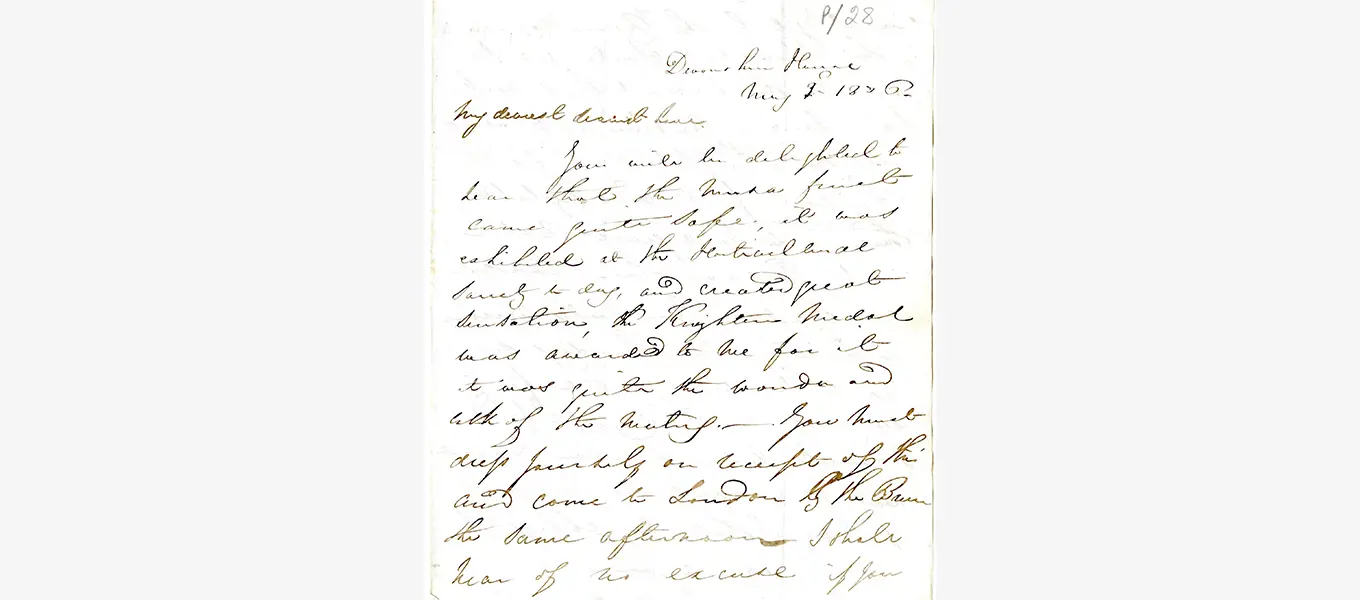 P/28
Devonshire House
May 3 1836
My dearest dearest love.
You will be delighted to
hear that the Musa fruit
came quite safe, it was
exhibited at the Horticultural
Society to day, and created great
sensation, the Knightean Medal
was awarded to me for it
it was quite the wonder and
talk of the meeting. — You must
dress yourself on receipt of this
and come to London by the
the same afternoon I shall
hear of no excuse if you